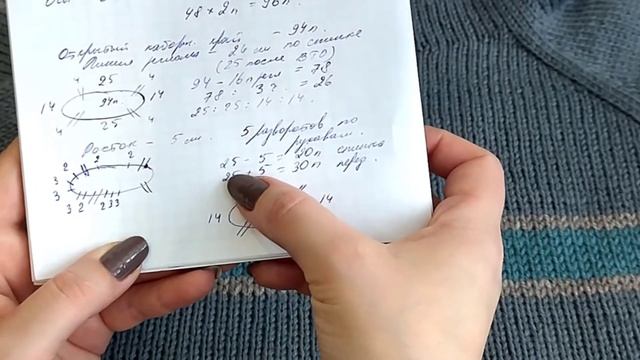 48 х 2п = 96п.
Открытый наборн. край - 94п.
Линия реглана = 24 см по спинке
(25 после ВТО)
25
4 4
14 94п. 14
4 4
25
94 - 16п = 78
78 : 3 = 26
25 : 25 : 14 : 14.
Росток - 5 см.
5 разворотов по
рукавам.
25 - 5 = 20п спинка
25 + 5 = 30п перед.
2 2 2
3
3
3 2 2 3 3
14 14